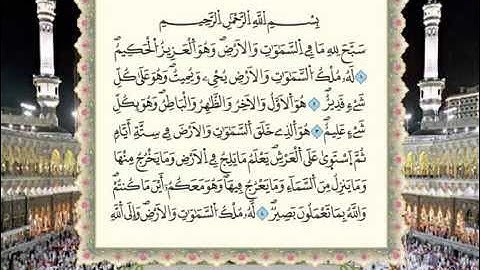 بِسْمِ اللَّهِ الرَّحْمَٰنِ الرَّحِيمِ
سَبَّحَ لِلَّهِ مَا فِي السَّمَوَتِ وَالْأَرْضِ وَهُوَ الْعَزِيزُ الْحَكِيمُ
١ لَهُ مُلْكُ السَّمَوَتِ وَالْأَرْضِ يُحْيِ وَيُمِيتُ وَهُوَ عَلَىٰ كُلِّ
شَيْءٍ قَدِيرٌ ٢ هُوَ الْأَوَّلُ وَالْآخِرُ وَالظَّهِرُ وَالْبَاطِنُ وَهُوَ بِكُلِّ
شَيْءٍ عَلِيمٌ ٣ هُوَ الَّذِي خَلَقَ السَّمَوَتِ وَالْأَرْضَ فِي سِتَّةِ أَيَّامٍ
ثُمَّ اسْتَوَىٰ عَلَى الْعَرْشِ يَعْلَمُ مَا يَلِجُ فِي الْأَرْضِ وَمَا يَخْرُجُ مِنْهَا
وَمَا يَنزِلُ مِنَ السَّمَاءِ وَمَا يَعْرُجُ فِيهَا وَهُوَ مَعَكُمْ أَيْنَ مَا كُنتُمْ
وَاللَّهُ بِمَا تَعْمَلُونَ بَصِيرٌ ٤ لَهُ مُلْكُ السَّمَوَتِ وَالْأَرْضِ وَإِلَى اللَّهِ